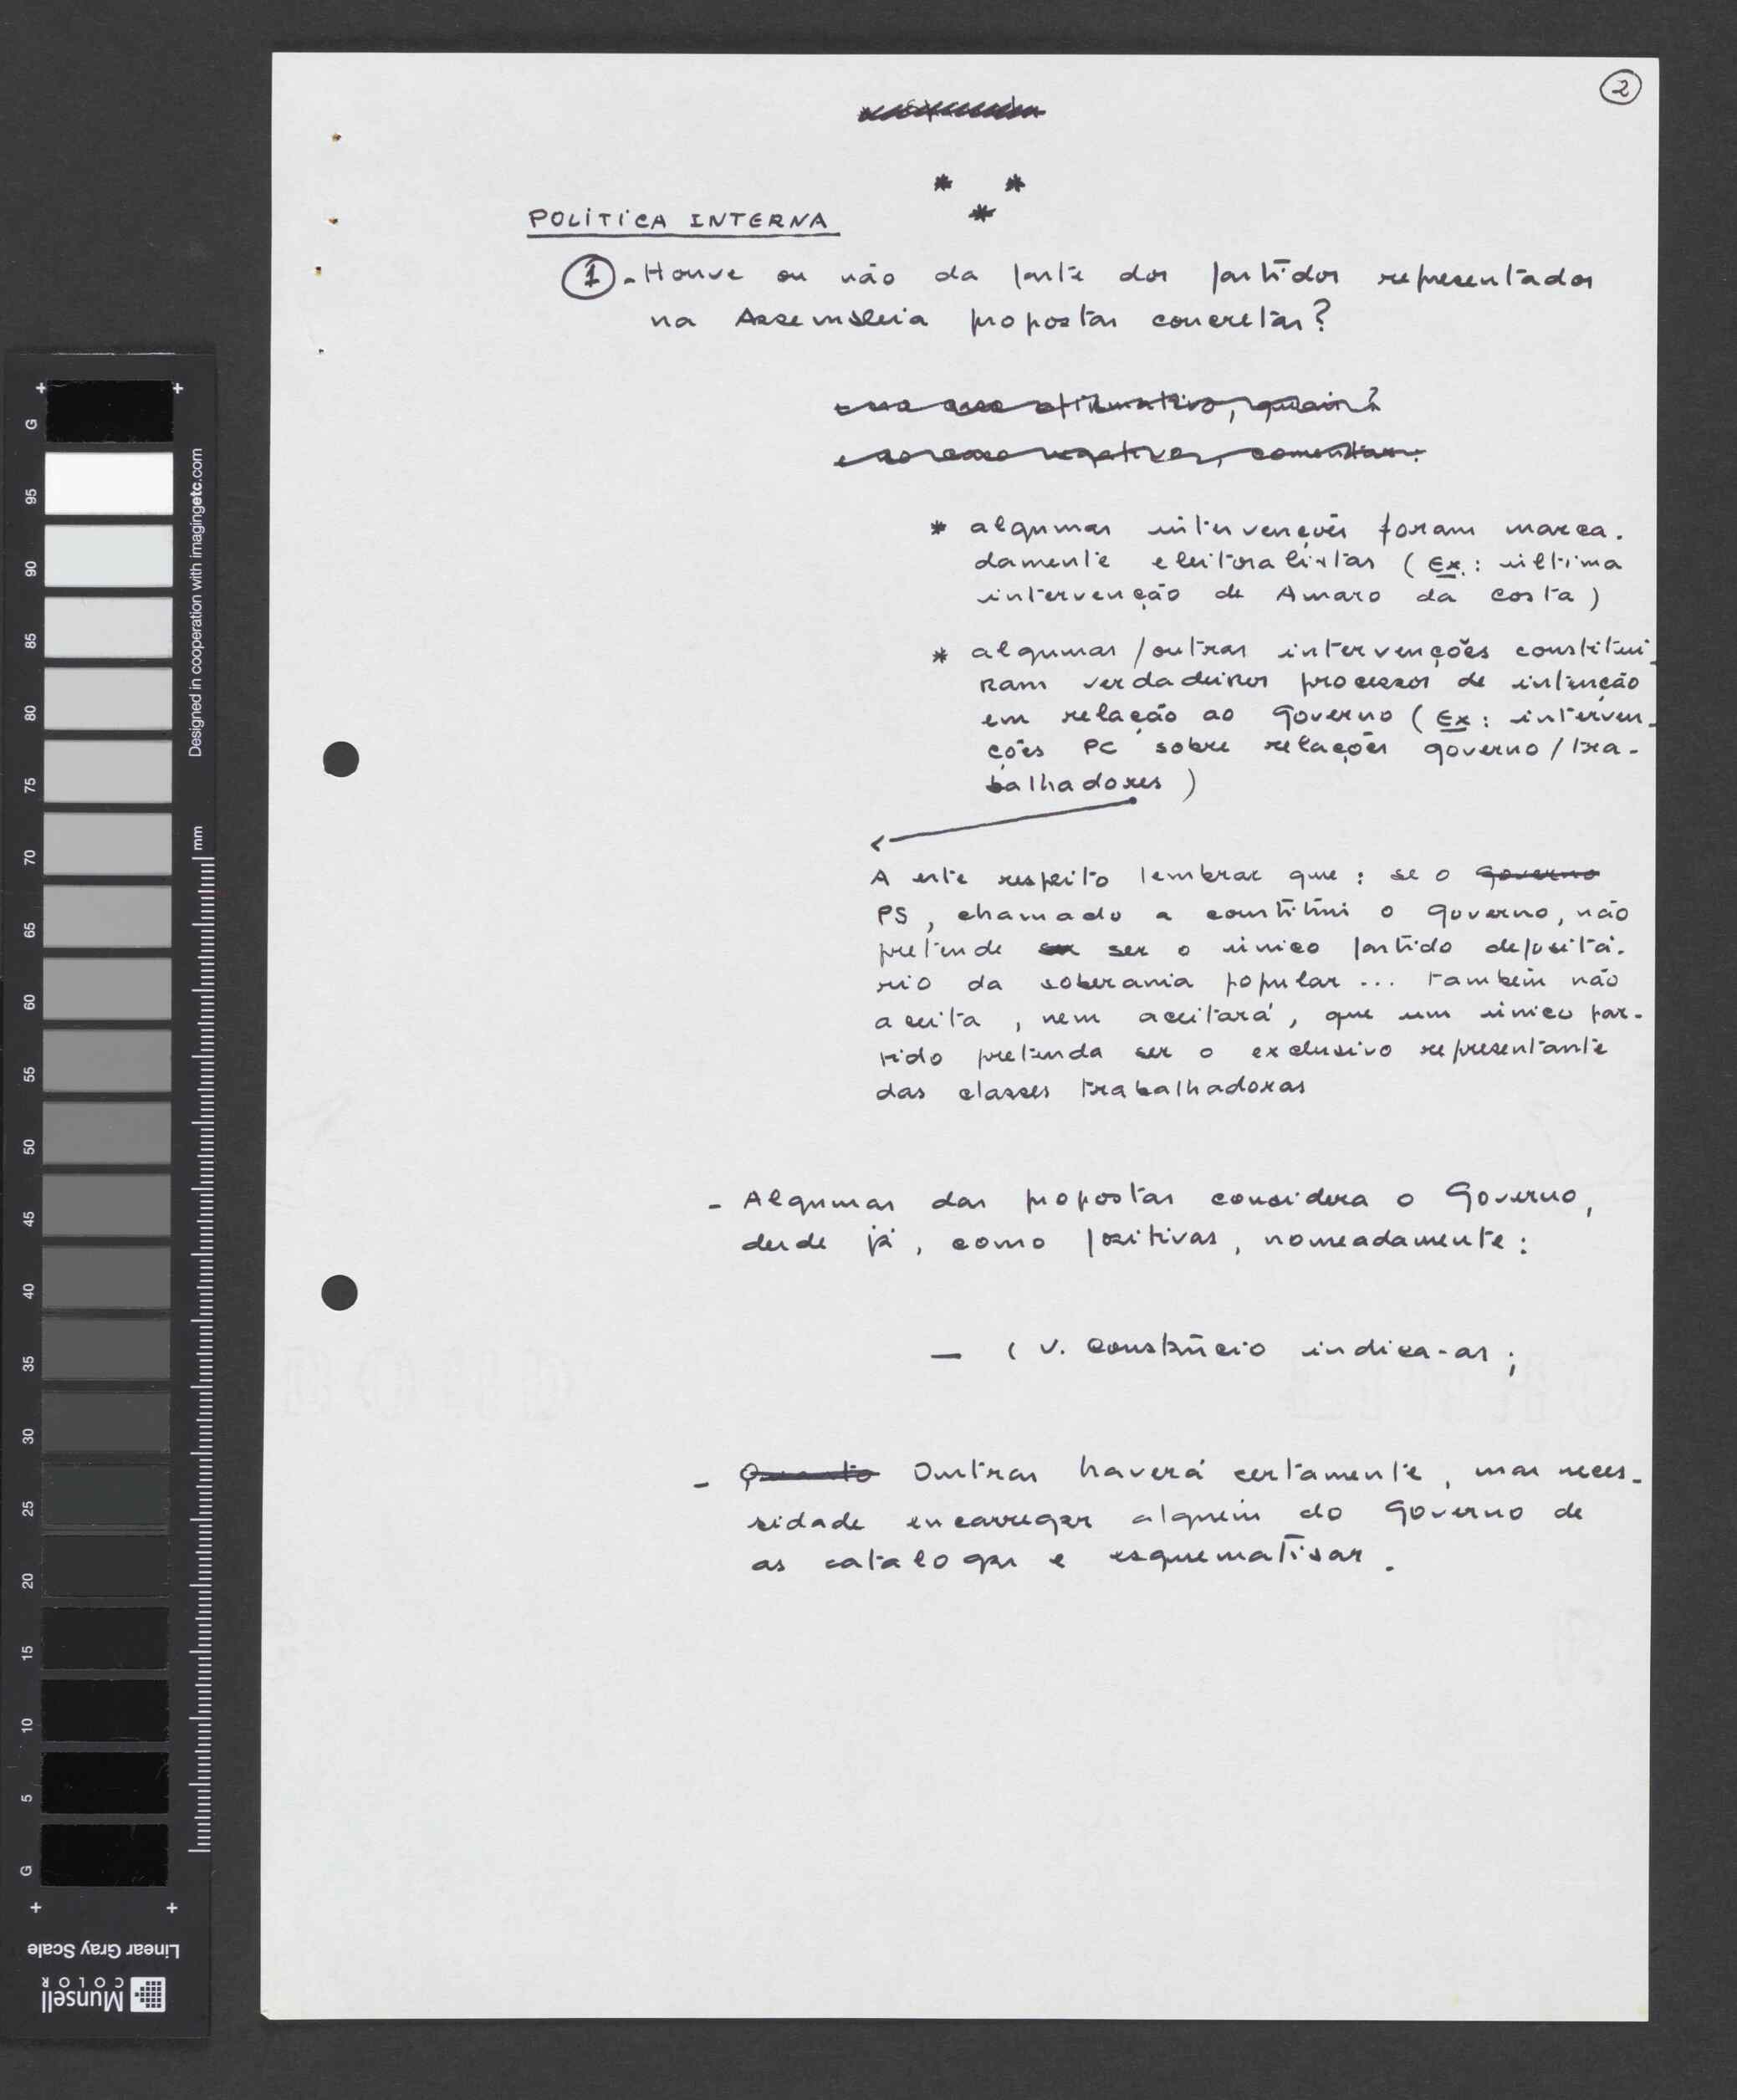 2
* *
*
POLÍTICA INTERNA
1 - Houve ou não da parte dos partidos representados
na Assembleia propostas concretas?
* algumas intervenções foram marca-
damente eleitoralistas (Ex.: última
intervenção de Amaro da Costa)
* algumas / outras intervenções constitui-
ram verdadeiros processos de intenção
em relação ao Governo (Ex: interven-
ções PC sobre relações governo/tra-
balhadores)
A este respeito lembrar que: se o Governo
PS, chamado a constituir o governo, não
pretende ser o único partido depositá-
rio da soberania popular... também não
aceita, nem aceitará, que um único par-
tido pretenda ser o exclusivo representante
das classes trabalhadoras
- Algumas das propostas considera o Governo,
desde já, como positivas, nomeadamente:
— ( V. Constâncio indica-as ;
- Quanto Outras haverá certamente, mas neces-
sidade encarregar alguém do Governo de
as catalogar e esquematisar.
G
95
90
85
80
75
70
65
60
55
50
45
40
35
30
25
20
15
10
5
G
Designed in cooperation with imagingetc.com
mm
Linear Gray Scale
Munsell
COLOR